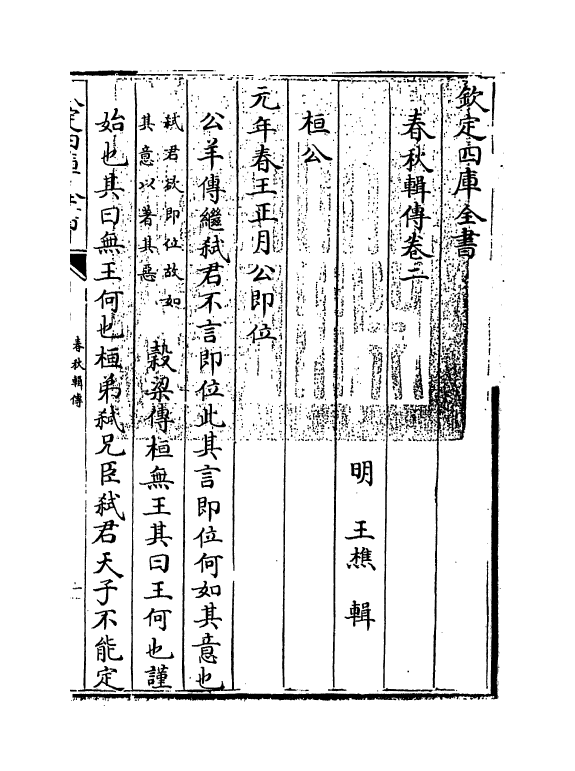 欽定四庫全書
春秋輯傳卷二
明 王樵 輯
桓公
元年春王正月公即位
公羊傳繼弑君不言即位此其言即位何如其意也
弑君欲即位故如
其意以著其惡
穀梁傳桓無王其曰王何也謹
始也其曰無王何也桓弟弑兄臣弑君天子不能定
春秋輯傳